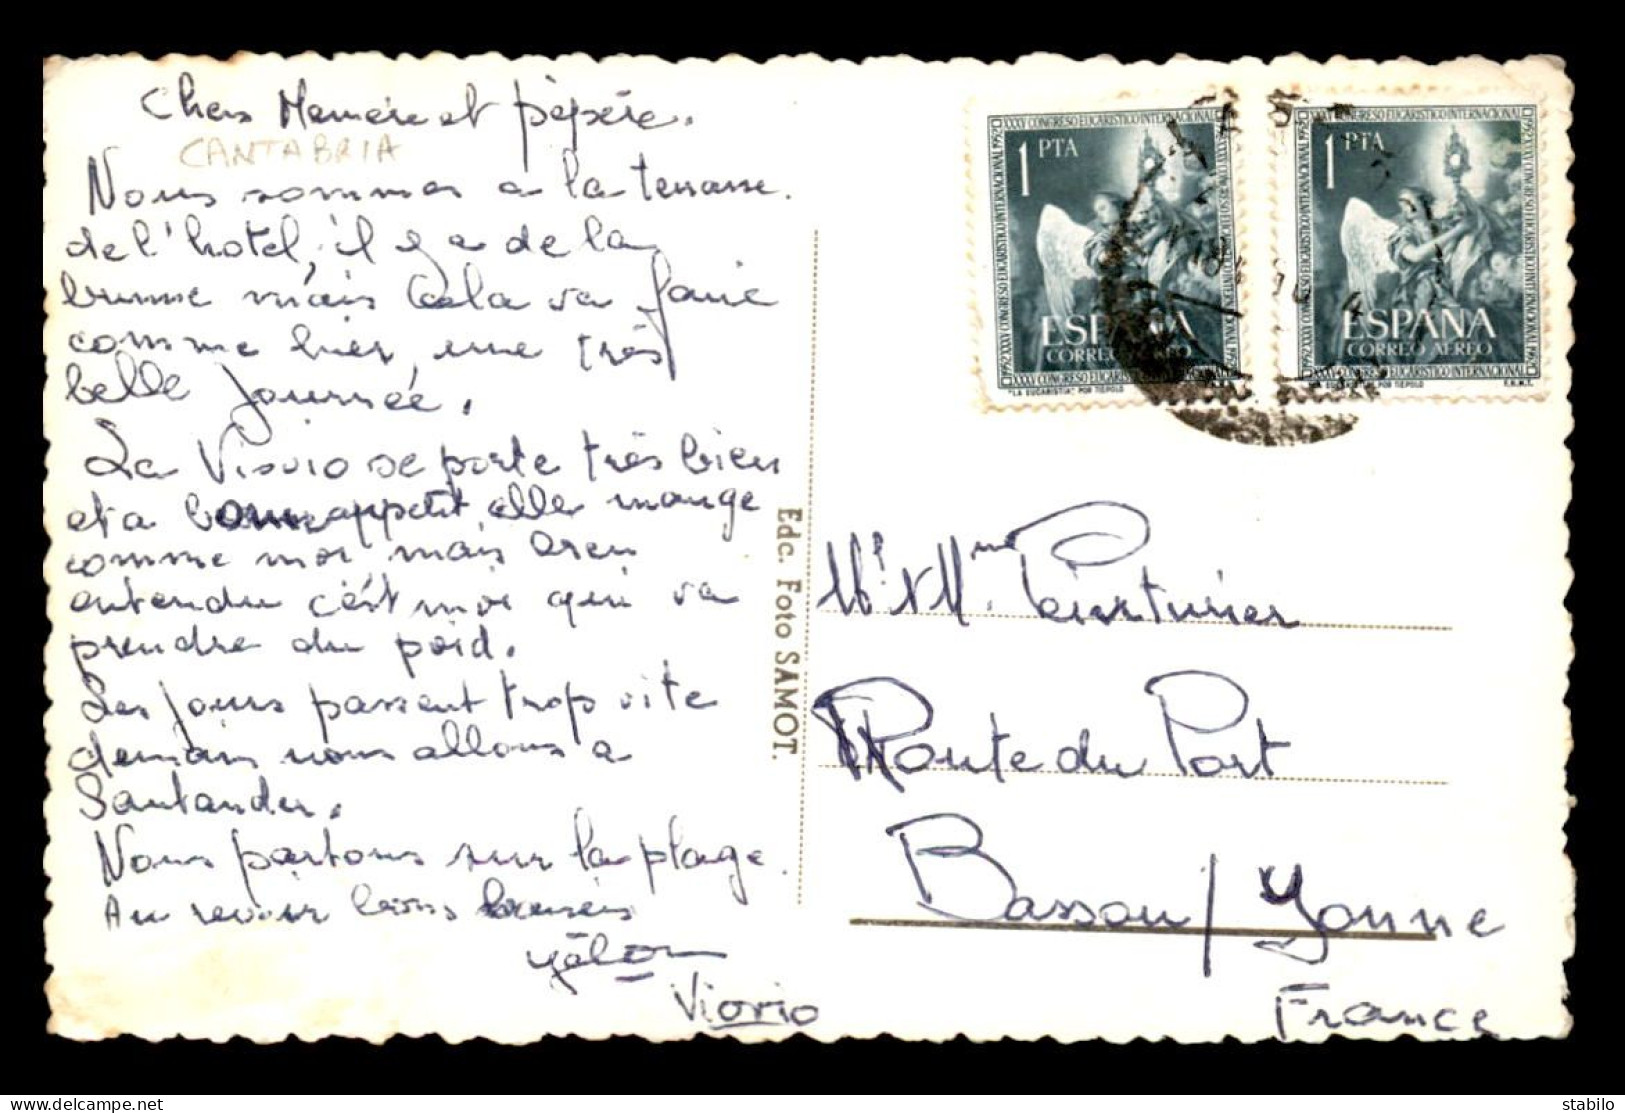 Chers Memère et pèpère.
CANTABRIA
Nous sommes a la terrasse
de l'hotel, il y a de la
brume mais Cela va faire
comme hier, une très
belle journée.
La Viovio se porte très bien
et a appetit, elle mange
comme moi mais bien
entendu c'est moi qui va
prendre du poid.
Les jours passent trop vite
demain nous allons a
Santander.
Nous partons sur la plage.
Au revoir bons baisers
Viovio
Edc. Foto SAMOT.
1 PTA
XXXV CONGRESO EUCARISTICO INTERNACIONAL 1952
ESPAÑA
CORREO AEREO
"LA EUCARISTIA", POR TIEPOLO F.N.M.T.
1 PTA
XXXV CONGRESO EUCARISTICO INTERNACIONAL 1952
ESPAÑA
CORREO AEREO
"LA EUCARISTIA", POR TIEPOLO F.N.M.T.
Mr & Mme
Route du Port
Bassou / Yonne
France
stabilo delcampe.net